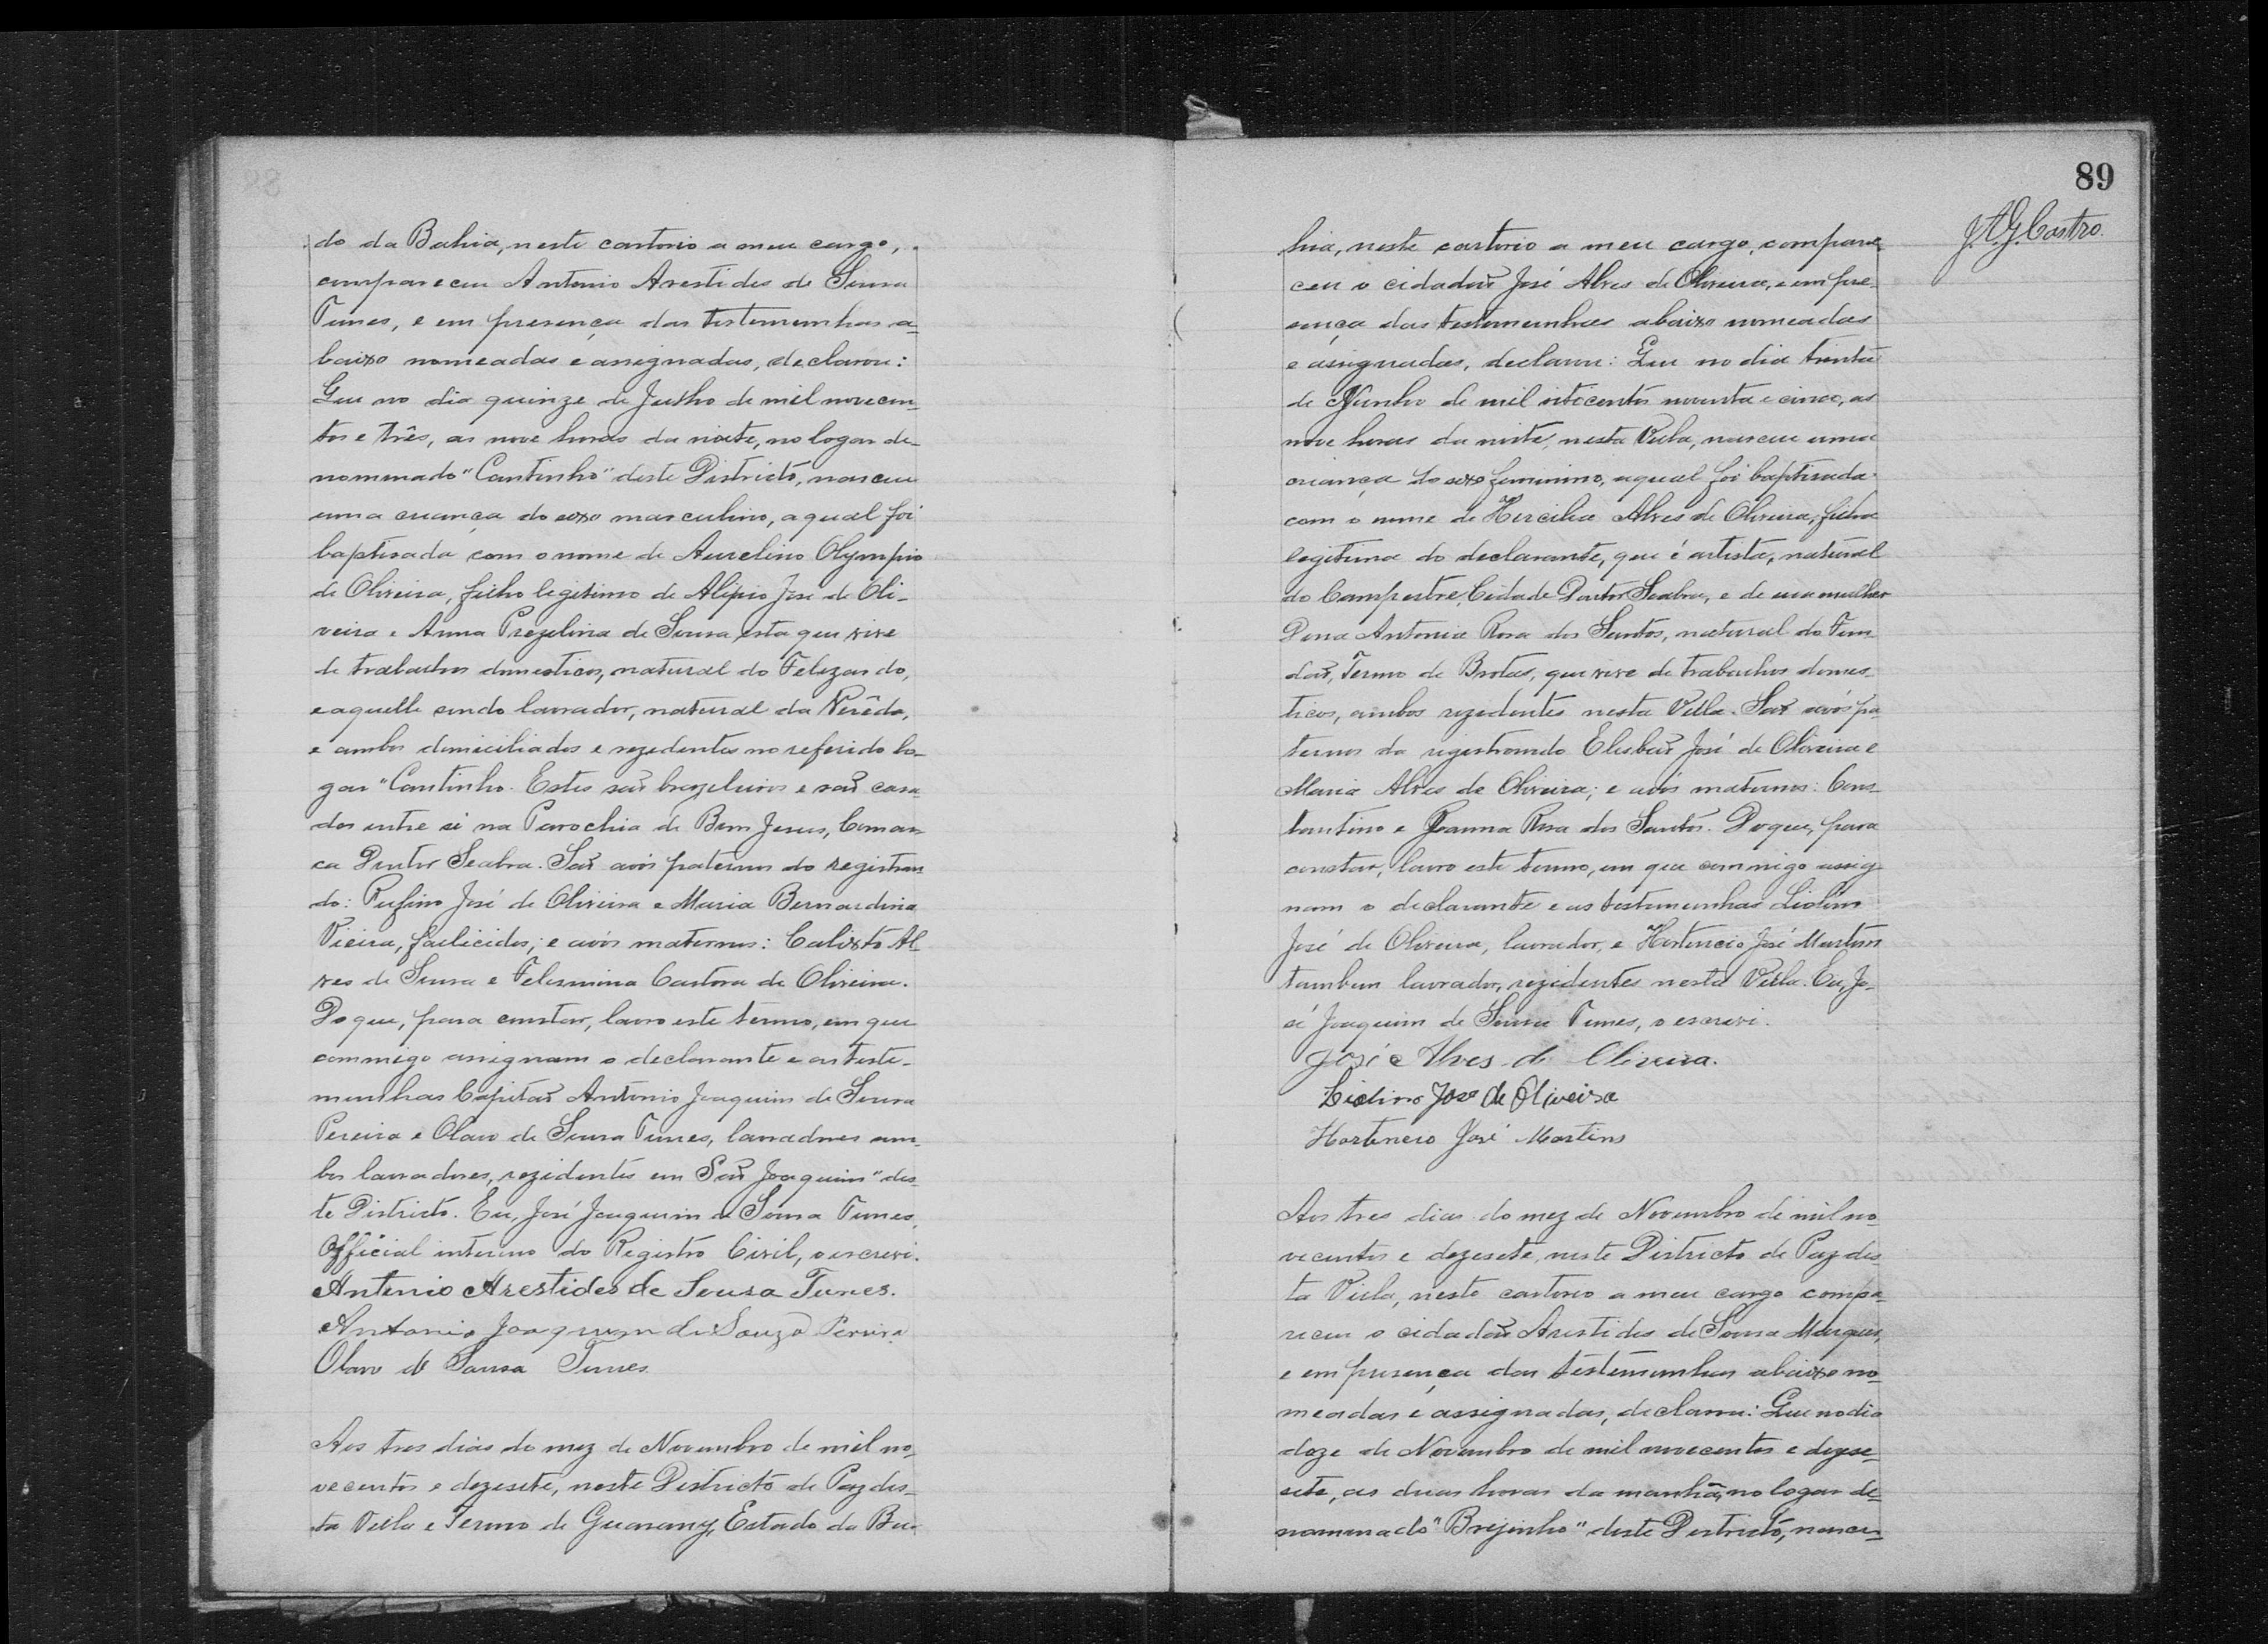 do da Bahia, neste cartorio a meu cargo,
compareceu Antonio Arestides de Sousa
Tunes, e em presença das testemunhas a-
baixo nomeadas e assignadas, declarou:
Que no dia quinze de Julho de mil novecen-
tos e três, as nove horas da noite, no logar de-
nominado "Cantinho" deste Districto, nasceu
uma criança do sexo masculino, a qual foi
baptisada com o nome de Aurelino Olympio
de Oliveira, filho legitimo de Alipio José de Oli-
veira e Anna Prezelina de Sousa, esta que vive
de trabalhos domesticos, natural do
e aquelle sendo lavrador, natural da
e ambos domiciliados e rezidentes no referido lo-
gar "Cantinho. Estes saõ brazeleiros e saõ casa-
dos entre si na Parochia de Bom Jesus, Comar-
ca Doutor Seabra. Saõ avós paternos do registran-
do: Rufino José de Oliveira e Maria Bernardina
Vieira, fallicidos; e avós maternos: Calixto Al-
ves de Sousa e Felesmina Castora de Oliveira.
Do que, para constar, lavro este termo, em que
commigo assignam o declarante e as teste-
munhas Capitaõ Antonio Joaquim de Sousa
Pereira e Olavo de Sousa Tunes, lavradores am-
bos lavradores, rezidentes em Saõ Joaquim" des-
te Districto. Eu, José Joaquim de Sousa Tunes,
Official interino do Registro Civil, o escrevi.
Antonio Arestides de Sousa Tunes.
Antonio Joaquim de Souza Pereira
Olavo de Sousa Tunes
Aos tres dias do mez de Novembro de mil no-
vecentos e dezesete, neste Districto de Paz des-
ta Villa e Termo de Guarany, Estado da Ba-
89
J. A. G. Castro.
hia, neste cartorio a meu cargo, compare-
ceu o cidadaõ José Alves de Oliveira, e em pre-
sença das testemunhas abaixo nomeadas
e assignadas, declarou: Que no dia trinta
de Junho de mil oitocentos noventa e cinco, as
nove horas da noite, nesta Villa, nasceu uma
criança do sexo feminino, a qual foi baptisada
com o nome de Hercilia Alves de Oliveira, filha
legitima do declarante, que é artista, natural
do Campestre, Cidade Doutor Seabra, e de sua mulher
Dona Antonia Rosa dos Santos, natural do Fun-
daõ, Termo de Brotas, que vive de trabalhos domes-
ticos, ambos rezidentes nesta Villa. Saõ avós pa-
ternos da registrando Elesbaõ José de Oliveira e
Maria Alves de Oliveira; e avós maternos: Cons-
tantino e Joanna Rosa dos Santos. Do que, para
constar, lavro este termo, em que commigo assig-
nam o declarante e as testemunhas Liolino
José de Oliveira, lavrador, e Hortencio José Martins
tambem lavrador, rezidentes nesta Villa. Eu, Jo-
sé Joaquim de Sousa Tunes, o escrevi.
José Alves de Oliveira.
Liolino Jose de Oliveira
Hortencio José Martins
Aos tres dias do mez de Novembro de mil no-
vecentos e dezesete, neste Districto de Paz des-
ta Villa, neste cartorio a meu cargo compa-
receu o cidadaõ Arestides de Sousa Marques,
e em presença das testemunhas abaixo no-
meadas e assignadas, declarou: Que no dia
doze de Novembro de mil novecentos e dezese-
sete, as duas horas da manhã, no logar de-
nominado "Brejinho" deste Districto, nasceu